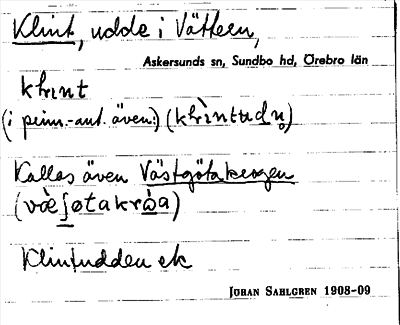 Klint, udde i Vättern,
Askersunds sn, Sundbo hd, Örebro län
klɩnt
(i prim.-ant. även:) (klɩ̀ntɯdn̥)
Kallas även Västgötakrogen
(væ̀ʃøtakrὼa)
Klintudden ek
JÖRAN SAHLGREN 1908-09